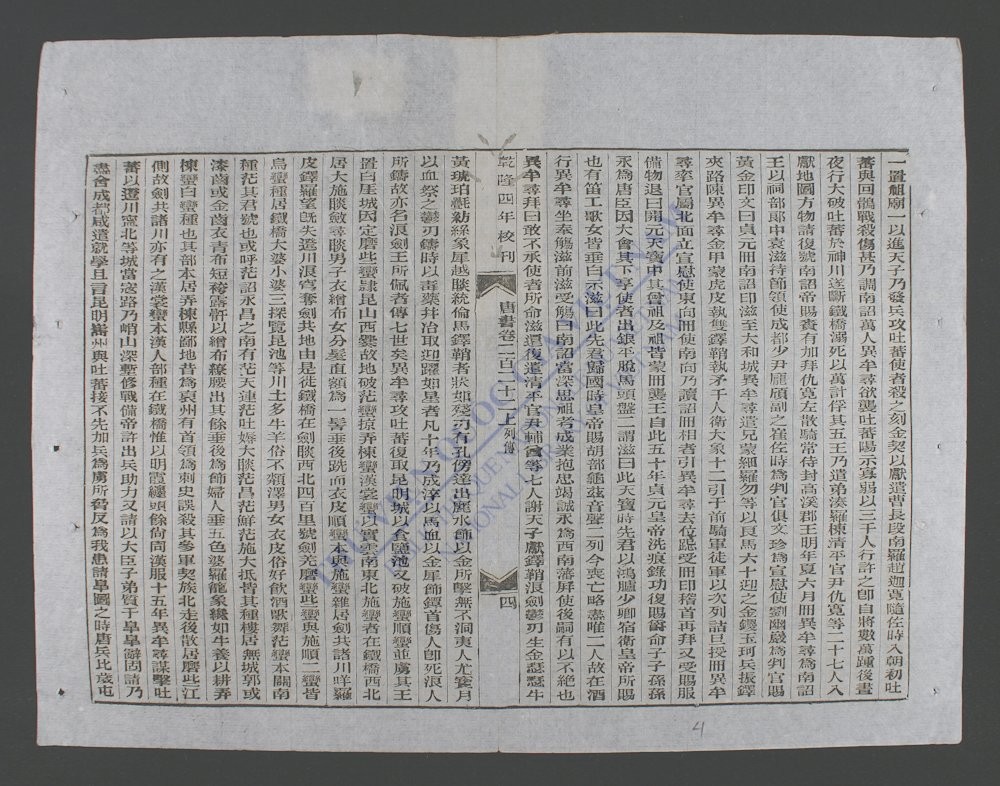 一置祖廟一以進天子乃發兵攻吐蕃使者殺之刻金契以獻遣曹長段南羅趙迦寬隨佐時入朝初吐
蕃與回鶻戰殺傷甚乃調南詔萬人異牟尋欲襲吐蕃陽示寡弱以三千人行許之即自將數萬踵後晝
夜行大破吐蕃於神川遂斷鐵橋溺死以萬計俘其五王乃遣弟湊羅棟清平官尹仇寬等二十七人入
獻地圖方物請復號南詔帝賜賚有加拜仇寬左散騎常侍封高溪郡王明年夏六月冊異牟尋為南詔
王以祠部郎中袁滋持節領使成都少尹龐頎副之崔佐時為判官俱文珍為宣慰使劉幽巖為判官賜
黃金印文曰貞元冊南詔印滋至大和城異牟尋遣兄蒙細羅勿等以良馬六十迎之金鍐玉珂兵振鐸
夾路陳異牟尋金甲蒙虎皮執雙鐸鞘執矛千人衛大象十二引于前騎軍徒軍以次列詰旦授冊異牟
尋率官屬北面立宣慰使東向冊使南向乃讀詔冊相者引異牟尋去位跽受冊印稽首再拜又受賜服
備物退曰開元天寶中其曾祖及祖皆蒙冊襲王自此五十年貞元皇帝洗痕錄功復賜爵命子子孫孫
永為唐臣因大會其下享使者出銀平脫馬頭盤二謂滋曰此天寶時先君以鴻臚少卿宿衛皇帝所賜
也有笛工歌女皆垂白示滋曰此先君歸國時皇帝賜胡部龜茲音聲二列今喪亡略盡唯二人故在酒
行異牟尋坐奉觴滋前滋受觴曰南詔當深思祖考成業抱忠竭誠永為西南藩屏使後嗣有以不絕也
異牟尋拜曰敢不承使者所命滋還復遣清平官尹輔酋等七人謝天子獻鐸鞘浪劍鬱刃生金瑟瑟牛
乾隆四年校刊
唐書卷二百二十二上 列傳
四
黃琥珀㲲紡絲象犀越睒統倫馬鐸鞘者狀如殘刃有孔傍達出麗水飾以金所擊無不洞夷人尤寶月
以血祭之鬱刃鑄時以毒藥并冶取迎躍如星者凡十年乃成淬以馬血以金犀飾鐔首傷人即死浪人
所鑄故亦名浪劍王所佩者傳七世矣異牟尋攻吐蕃復取昆明城以食鹽池又破施蠻順蠻並虜其王
置白厓城因定磨些蠻隸昆山西爨故地破茫蠻掠弄棟蠻漢裳蠻以實雲南東北施蠻者在鐵橋西北
居大施睒斂尋睒男子衣繒布女分髮直額為一髻垂後跣而衣皮順蠻本與施蠻雜居劍共諸川咩羅
皮鐸羅望既失邆川浪穹奪劍共地由是徙鐵橋在劍睒西北四百里號劍羌磨蠻些蠻與施順二蠻皆
烏蠻種居鐵橋大婆小婆三探覽昆池等川土多牛羊俗不頮澤男女衣皮俗好飲酒歌舞茫蠻本關南
種茫其君號也或呼茫詔永昌之南有茫天連茫吐薅大睒茫昌茫鮮茫施大抵皆其種樓居無城郭或
漆齒或金齒衣青布短袴露骭以繒布繚腰出其餘垂後為飾婦人垂五色娑羅籠象纔如牛養以耕弄
棟蠻白蠻種也其部本居弄棟縣鄙地昔為裒州有首領為刺史誤殺其參軍挈族北走後散居磨些江
側故劍共諸川亦有之漢裳蠻本漢人部種在鐵橋惟以朝霞纏頭餘尚同漢服十五年異牟尋謀擊吐
蕃以邆川寧北等城當寇路乃峭山深塹修戰備帝許出兵助力又請以大臣子弟質于皐皐辭固請乃
盡舍成都咸遣就學且言昆明巂州與吐蕃接不先加兵為虜所脅反為我患請皐圖之時唐兵比歲屯
4